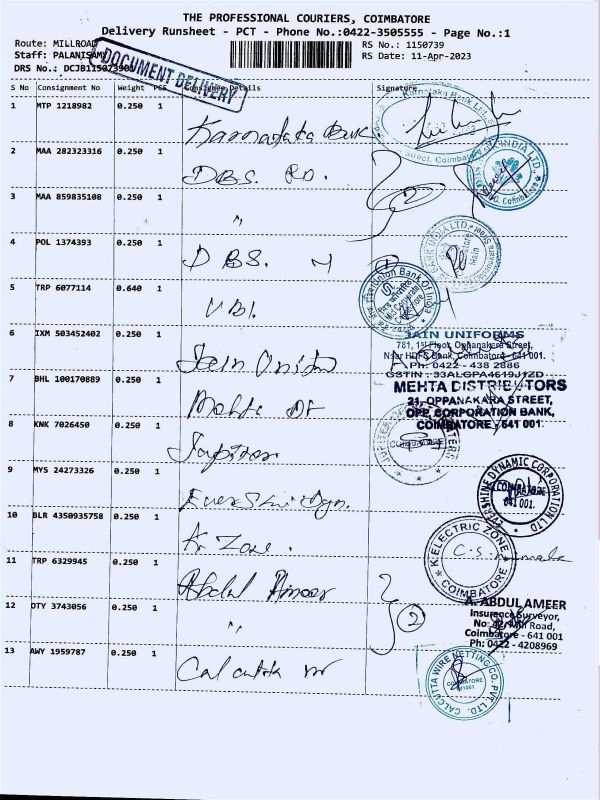 THE PROFESSIONAL COURIERS, COIMBATORE
Delivery Runsheet - PCT - Phone No.:0422-3505555 - Page No.:1
Route: MILLROAD
RS No.: 1150739
Staff: PALANISAMY
RS Date: 11-Apr-2023
DRS No.: DCJB1150739
DOCUMENT DELIVERY
S No Consignment No Weight PCS Consignee Details Signature
1 MTP 1218982 0.250 1 Karnataka Bank
Karnataka Bank Ltd.
Coimbatore
2 MAA 282323316 0.250 1 DBS RD.
INDIA LTD.
Coimbatore
3 MAA 859835108 0.250 1 "
2
4 POL 1374393 0.250 1 DBS.
BANK INDIA LTD.
5 TRP 6077114 0.640 1 UBI.
Union Bank Of India
6 IXM 503452402 0.250 1 Jain Unifo
JAIN UNIFORMS
781, 1st Floor, Oppanakara Street,
Near HDFC Bank, Coimbatore - 641 001.
Ph: 0422 - 438 2886
GSTIN : 33ALGPA4619J1ZD
7 BHL 100170889 0.250 1 Mehta Dt
MEHTA DISTRIBUTORS
21, OPPANAKARA STREET,
OPP. CORPORATION BANK,
COIMBATORE - 641 001.
8 KNK 7026450 0.250 1 Jupiter
COIMBATORE
9 MYS 24273326 0.250 1 Evershine Dyn.
EVERSHINE DYNAMIC CORPORATION LTD
COIMBATORE
641 001.
10 BLR 4350935758 0.250 1 K. Zone.
K.ELECTRIC ZONE
COIMBATORE
11 TRP 6329945 0.250 1 Abdul Ameer
12 DTY 3743056 0.250 1 "
2
A. ABDUL AMEER
Insurence Surveyor,
Mill Road,
Coimbatore - 641 001
Ph: 0422 - 4208969
13 AWY 1959787 0.250 1 Calcutta
CALCUTTA WIRE NETTING CO. PVT. LTD.
COIMBATORE
641001